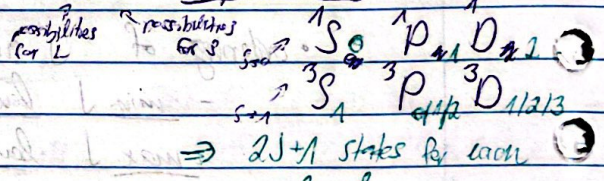 possibilities for L possibilities for S
S=0 → ¹S₀ ¹P₁ ¹D₂
S=1 → ³S₁ ³P₀/₁/₂ ³D₁/₂/₃
⇒ 2J+1 states for each